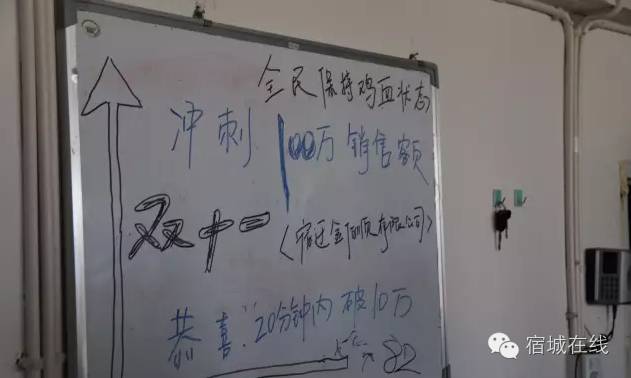 全民保持鸡血状态
冲刺100万销售额
双十一
恭喜:20分钟内破10万
宿城在线